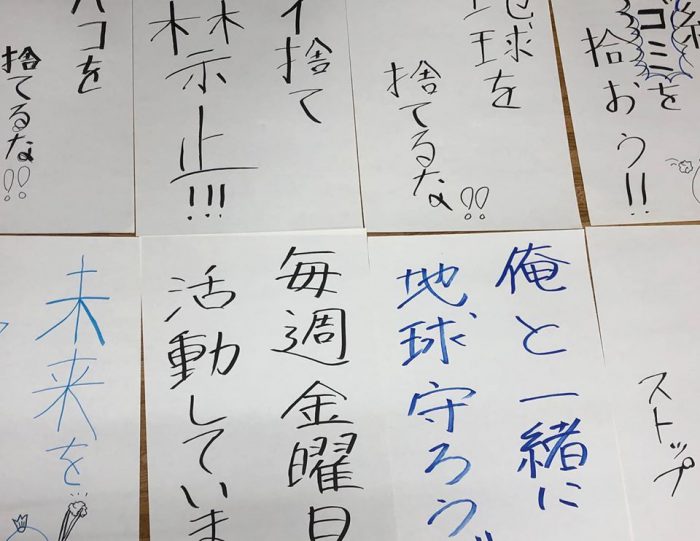 ゴミを
拾おう!!
地球を
捨てるな!!
イ捨て
禁止!!!
コを
捨てるな!!
ストップ
俺と一緒に
地球守ろう
毎週金曜日
活動していま
未来を…